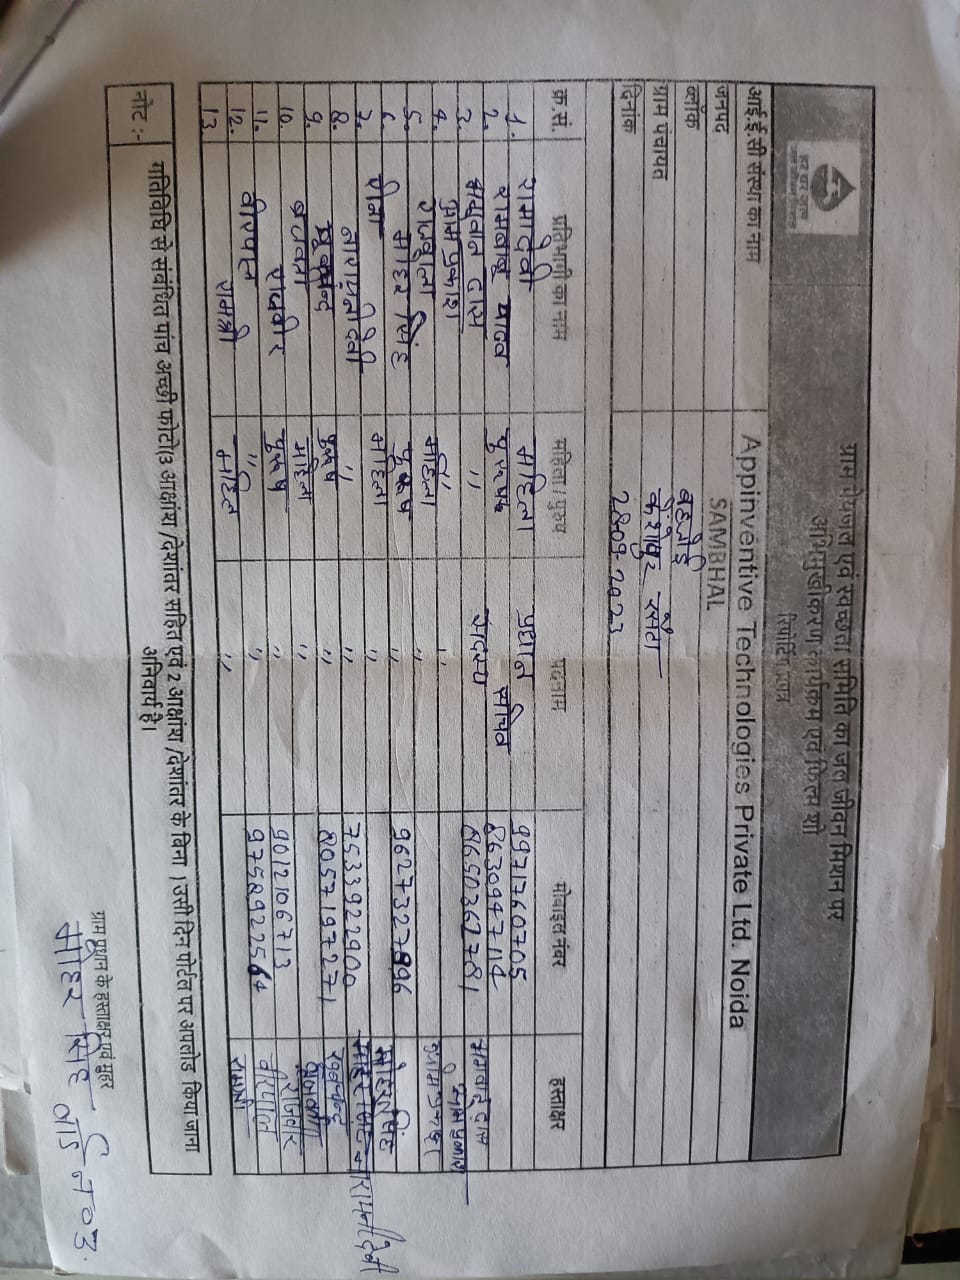 हर घर जल
जल जीवन मिशन
ग्राम पेयजल एवं स्वच्छता समिति का जल जीवन मिशन पर
अभिमुखीकरण कार्यक्रम एवं फिल्म शो
रिपोर्टिंग प्रपत्र
आई.ई.सी संस्था का नाम Appinventive Technologies Private Ltd. Noida
जनपद SAMBHAL
ब्लॉक बहजोई
ग्राम पंचायत केशोपुर रसेटा
दिनांक 28-09-2023
क्र.सं. प्रतिभागी का नाम महिला/पुरुष पदनाम मोबाइल नंबर हस्ताक्षर
1. रामादेवी महिला प्रधान 9971760705
2. रामबाबू यादव पुरुष सचिव 8630947114
3. भगवान दास " सदस्य 8650362781 भगवान दास
4. प्रेम प्रकाश " "
5. राजकुमारी महिला "
6. मोहर सिंह पुरुष " 9627327896 मोहर सिंह
7. महिला "
8. नारायनी देवी " " 7533922900 नारायनी देवी
9. पुरुष " 8057197271
10. महिला "
11. राजवीर पुरुष " 9012106713 राजवीर
12. वीरपाल " " 9758922564 वीरपाल
13 रामश्री महिला " रामश्री
नोट :- गतिविधि से संबंधित पांच अच्छी फोटो(3 आक्षांश /देशांतर सहित एवं 2 आक्षांश /देशांतर के बिना ) उसी दिन पोर्टल पर अपलोड किया जाना
अनिवार्य है।
ग्राम प्रधान के हस्ताक्षर एवं मुहर
मोहर सिंह वार्ड न०